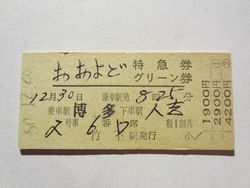 おおよど 特急券
グリーン券
12月30日 乗車駅発 8時25分
乗車駅 博多 下車駅 人吉
2号車 6番 席 税1割共
駅発行
1900円
2900円
4200円